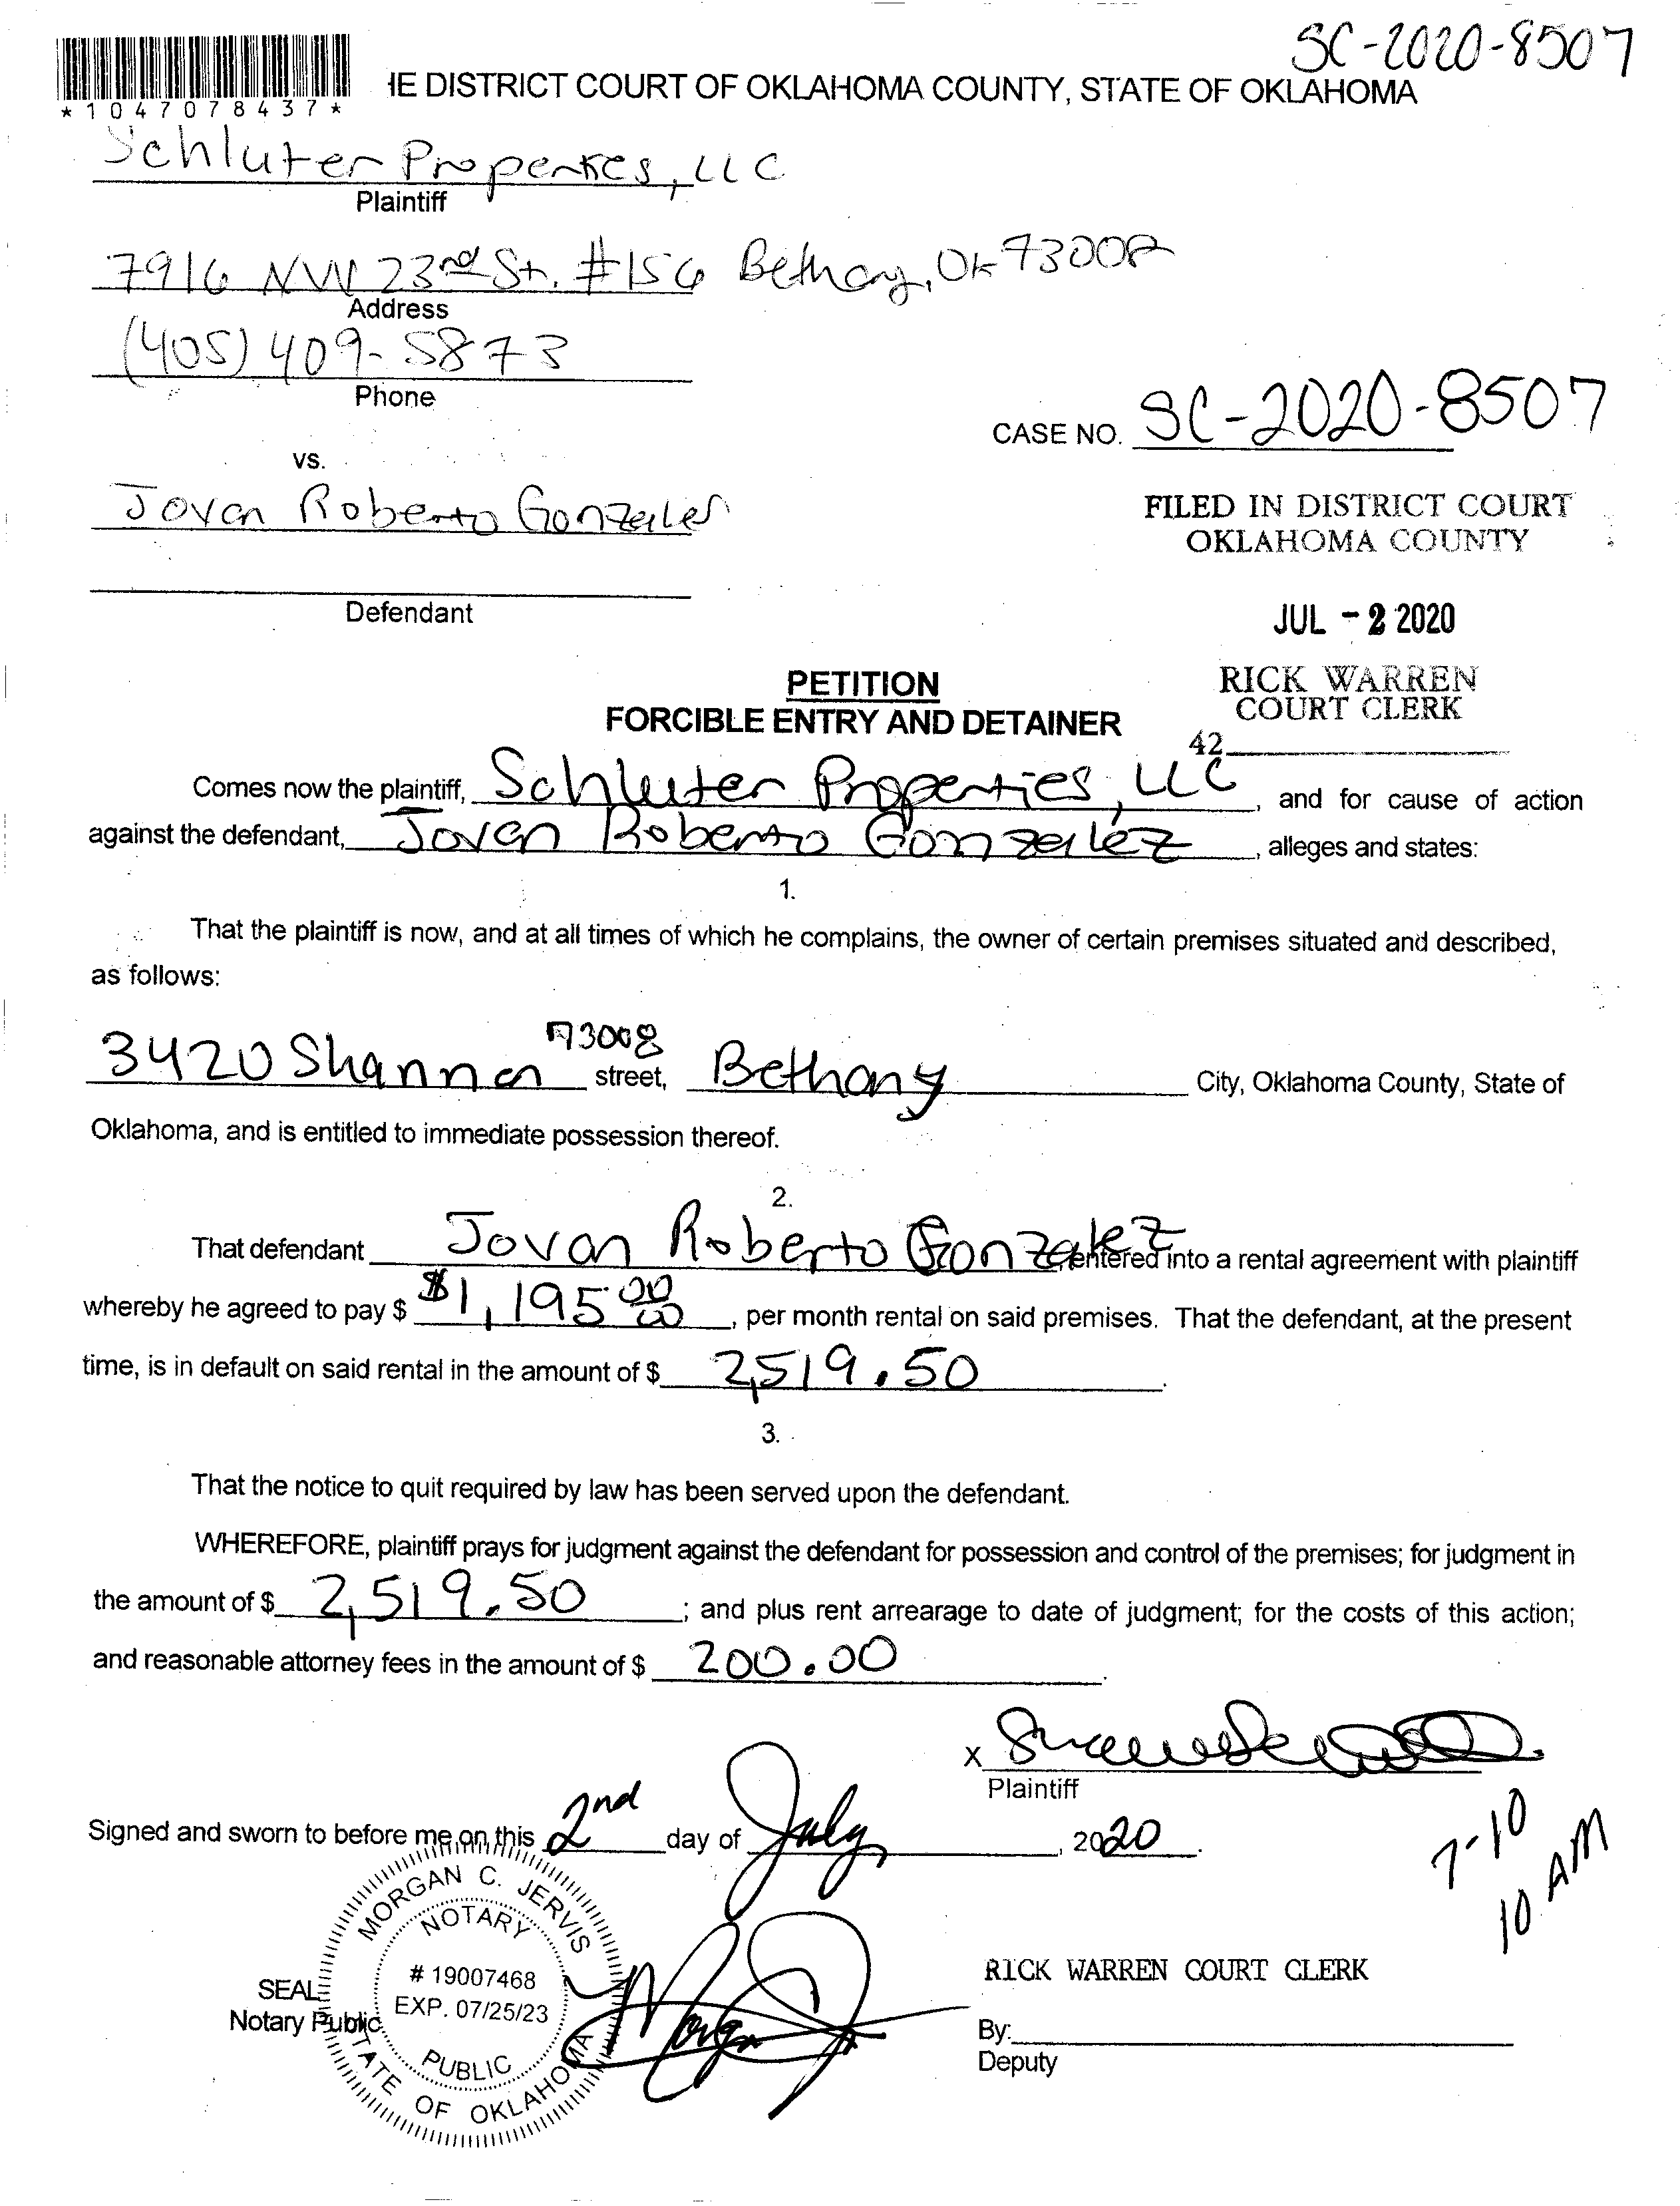 SC-2020-8507
*1047078437*
IE DISTRICT COURT OF OKLAHOMA COUNTY, STATE OF OKLAHOMA
Schluter Properties, LLC
Plaintiff
7916 NW 23rd St. #156 Bethany, OK 73008
Address
(405) 409-5873
Phone
CASE NO. SC-2020-8507
vs.
Jovan Roberto Gonzalez
FILED IN DISTRICT COURT
OKLAHOMA COUNTY
Defendant
JUL - 2 2020
RICK WARREN
COURT CLERK
42
PETITION
FORCIBLE ENTRY AND DETAINER
Comes now the plaintiff, Schluter Properties, LLC, and for cause of action
against the defendant, Jovan Roberto Gonzalez, alleges and states:
1.
That the plaintiff is now, and at all times of which he complains, the owner of certain premises situated and described,
as follows:
3420 Shannon 73008 street, Bethany City, Oklahoma County, State of
Oklahoma, and is entitled to immediate possession thereof.
2.
That defendant Jovan Roberto Gonzalez entered into a rental agreement with plaintiff
whereby he agreed to pay $ $1,195 00/00, per month rental on said premises. That the defendant, at the present
time, is in default on said rental in the amount of $ 2,519.50.
3.
That the notice to quit required by law has been served upon the defendant.
WHEREFORE, plaintiff prays for judgment against the defendant for possession and control of the premises; for judgment in
the amount of $ 2,519.50; and plus rent arrearage to date of judgment; for the costs of this action;
and reasonable attorney fees in the amount of $ 200.00.
X
Plaintiff
Signed and sworn to before me on this 2nd day of July, 2020.
7-10
10 AM
MORGAN C. JERVIS
NOTARY
# 19007468
EXP. 07/25/23
PUBLIC
STATE OF OKLAHOMA
SEAL
Notary Public
RICK WARREN COURT CLERK
By:
Deputy